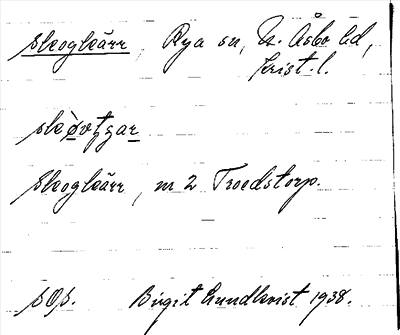 Skogkärr, Rya sn, N. Åsbo hd,
krist. l.
Skogkärr, m 2 Troedstorp.
sOp. Birgit Lundkvist 1938.